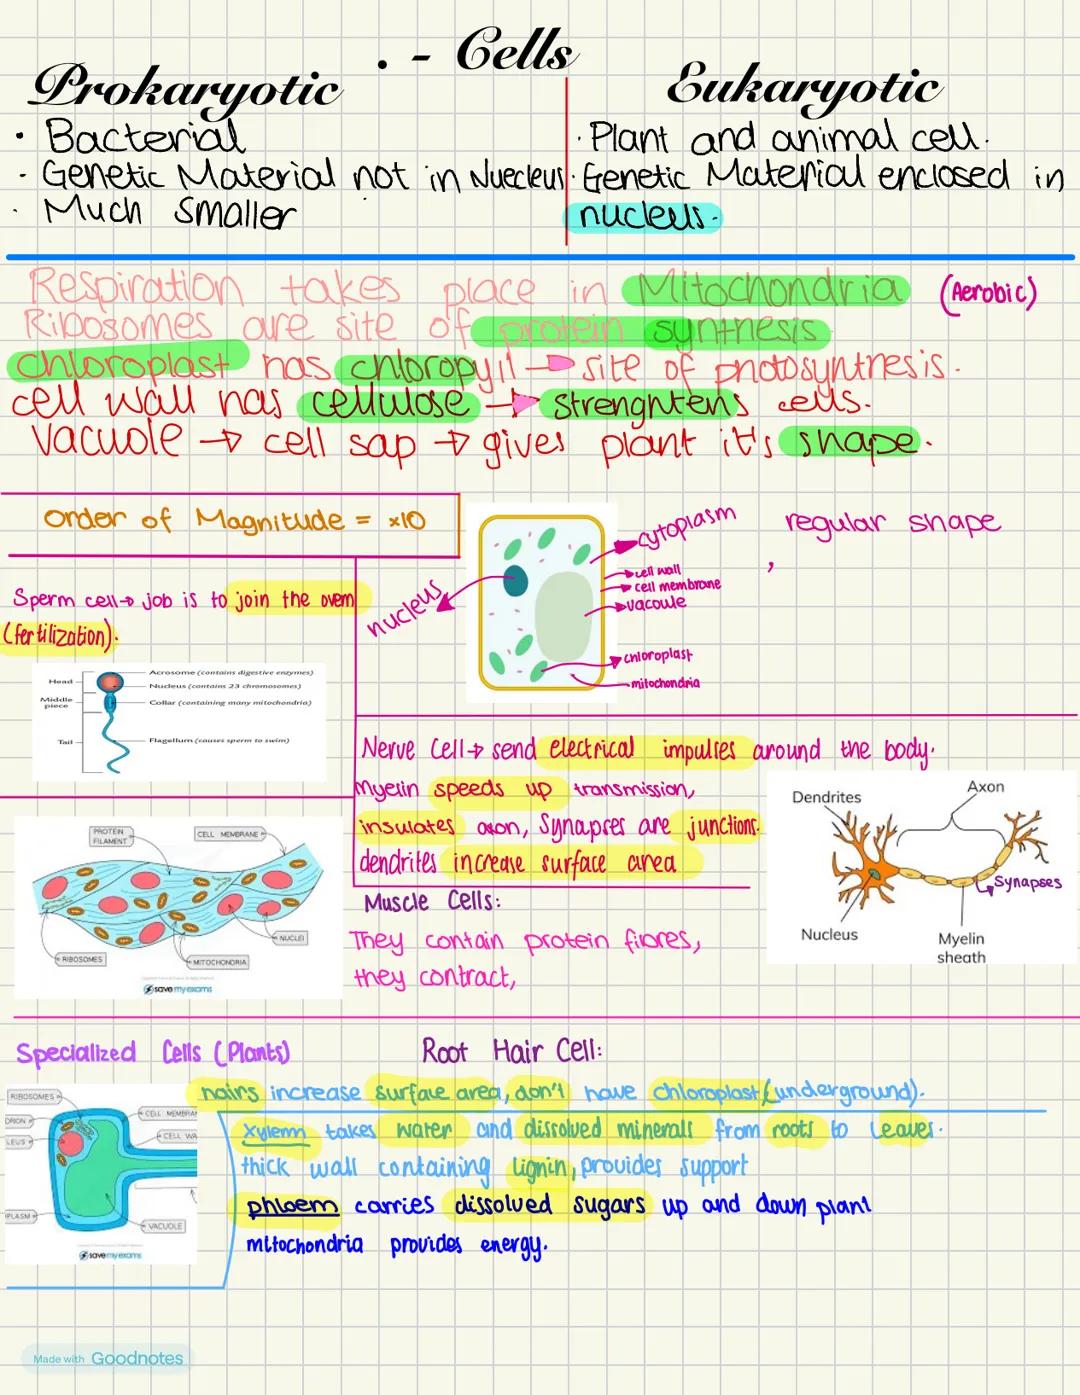 . - Cells
Prokaryotic
Eukaryotic
· Bacterial
· Genetic Material not in Nuecleus
· Much Smaller
· Plant and animal cell.
· Genetic Material enclosed in
nucleus.
Respiration takes place in Mitochondria (Aerobic)
Ribosomes are site of protein synthesis
Chloroplast has chloropyll → site of photosynthesis.
cell wall has cellulose → strenghtens cells.
Vacuole → cell sap → gives plant it's shape.
Order of Magnitude = x10
cytoplasm
regular shape
,
cell wall
cell membrane
vacoule
nucleus
chloroplast
mitochondria
Sperm cell → job is to join the ovem
(fertilization).
Head
Middle piece
Tail
Acrosome (contains digestive enzymes)
Nucleus (contains 23 chromosomes)
Collar (containing many mitochondria)
Flagellum (causes sperm to swim)
Nerve Cell → send electrical impulses around the body.
Myelin speeds up transmission,
insulates axon, Synapses are junctions.
dendrites increase surface area
Dendrites
Axon
Synapses
Nucleus
Myelin
sheath
PROTEIN
FILAMENT
CELL MEMBRANE
NUCLEI
RIBOSOMES
MITOCHONDRIA
save my exams
Muscle Cells:
They contain protein fibres,
they contract,
Specialized Cells (Plants)
Root Hair Cell:
hairs increase surface area, don't have chloroplast (underground).
RIBOSOMES
CELL MEMBRA
DRION
CELL WA
LEUS
PLASM
VACUOLE
save my exams
Xylem takes water and dissolved minerals from roots to leaves.
thick wall containing lignin, provides support
phloem carries dissolved sugars up and down plant
mitochondria provides energy.
Made with Goodnotes